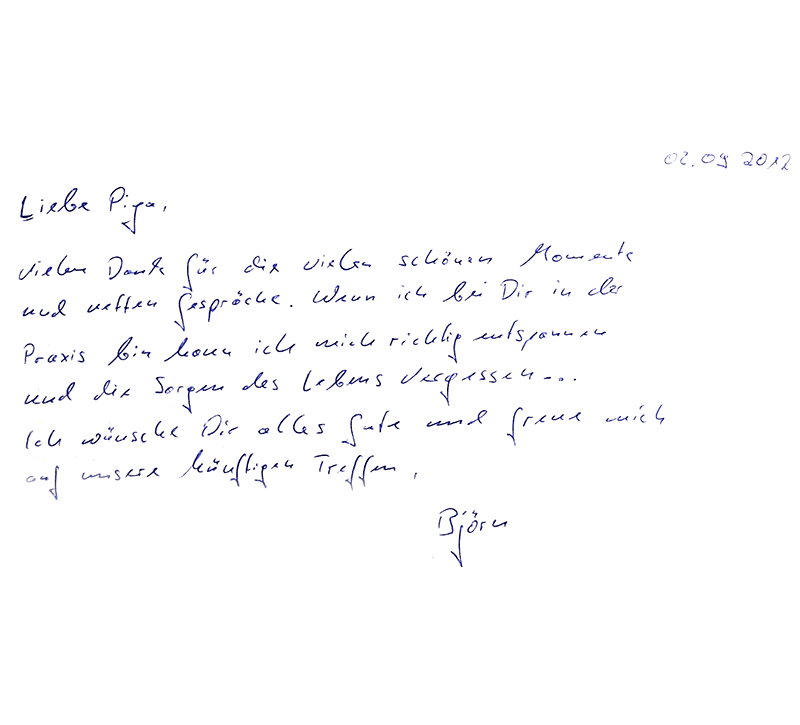 02.09 2012
Liebe Piga,
vielen Dank für die vielen schönen Momente
und netten Gespräche. Wenn ich bei Dir in der
Praxis bin kann ich mich richtig entspannen
und die Sorgen des Lebens vergessen...
Ich wünsche Dir alles Gute und freue mich
auf unsere künftigen Treffen,
Björn